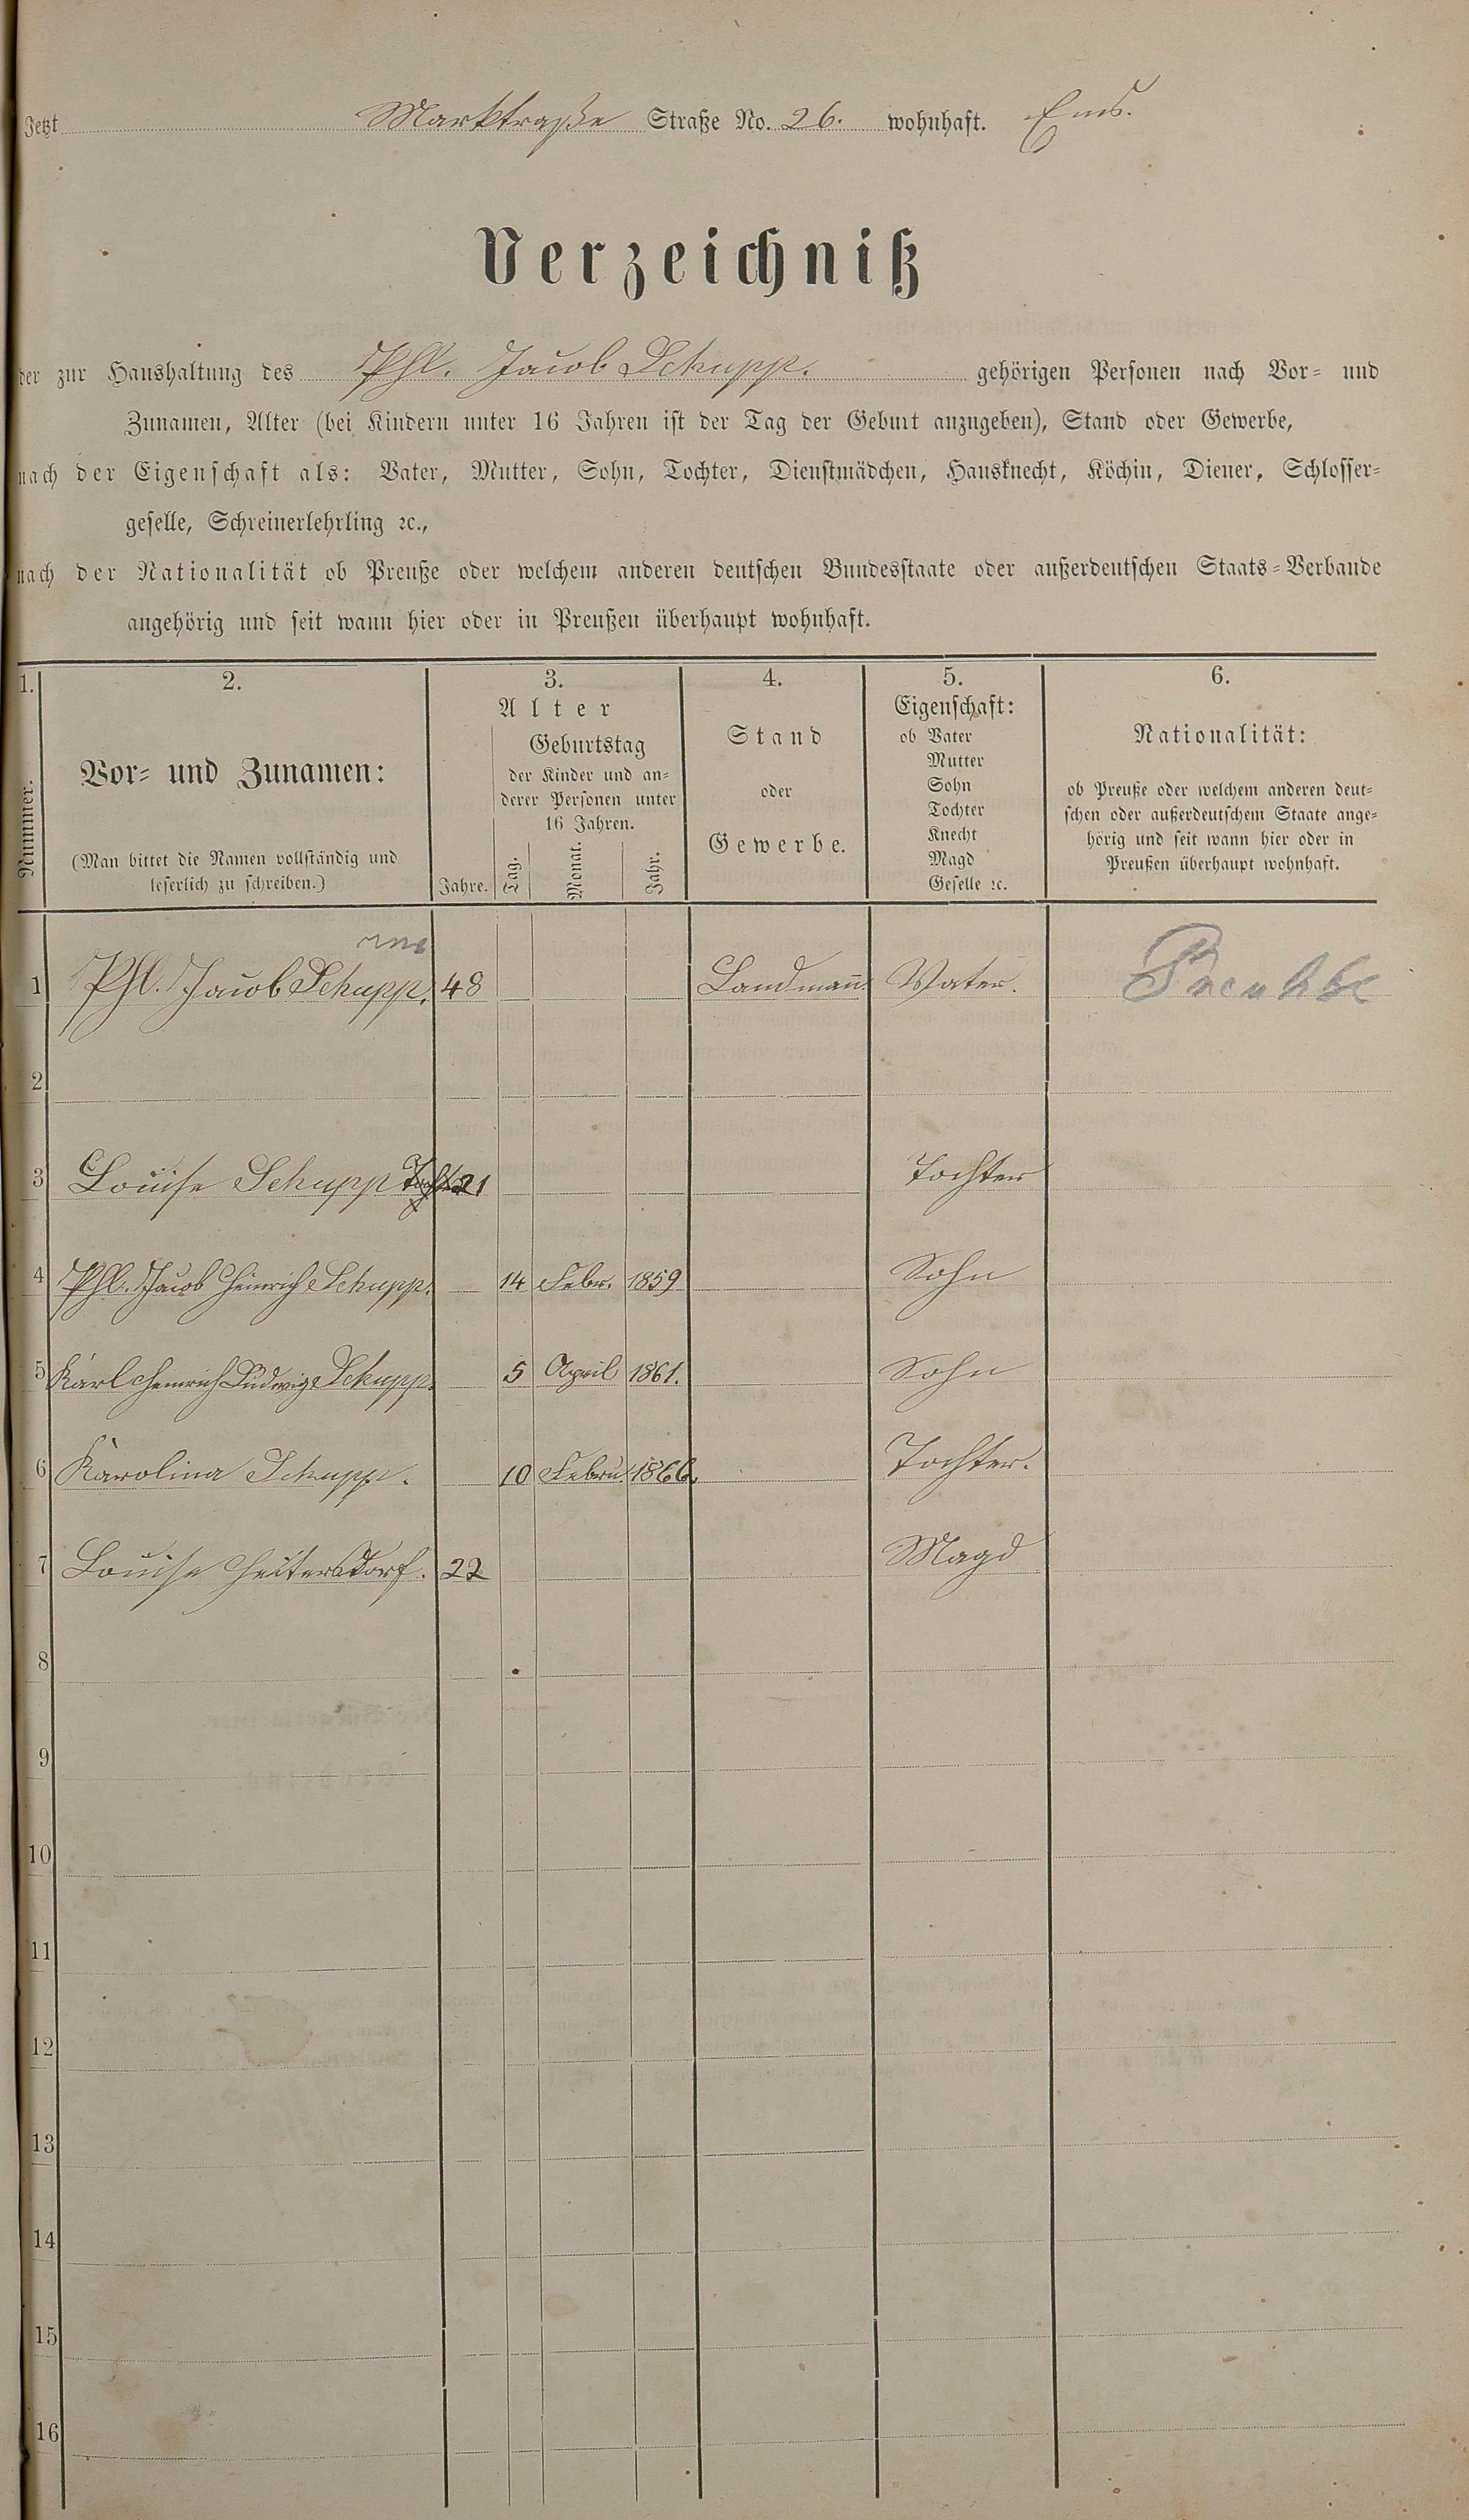 Jetzt Marktraße Straße No. 26. wohnhaft. Ems.
Verzeichniß
der zur Haushaltung des Phl. Jacob Schupp. gehörigen Personen nach Vor- und
Zunamen, Alter (bei Kindern unter 16 Jahren ist der Tag der Geburt anzugeben), Stand oder Gewerbe,
nach der Eigenschaft als: Vater, Mutter, Sohn, Tochter, Dienstmädchen, Hausknecht, Köchin, Diener, Schlosser-
geselle, Schreinerlehrling ꝛc.,
nach der Nationalität ob Preuße oder welchem anderen deutschen Bundesstaate oder außerdeutschen Staats-Verbande
angehörig und seit wann hier oder in Preußen überhaupt wohnhaft.
1. 2. 3. 4. 5. 6.
Nummer.
Vor- und Zunamen:
(Man bittet die Namen vollständig und
leserlich zu schreiben.)
Alter
Jahre.
Geburtstag
der Kinder und an-
derer Personen unter
16 Jahren.
Tag. Monat. Jahr.
Stand
oder
Gewerbe.
Eigenschaft:
ob Vater
Mutter
Sohn
Tochter
Knecht
Magd
Geselle ꝛc.
Nationalität:
ob Preuße oder welchem anderen deut-
schen oder außerdeutschem Staate ange-
hörig und seit wann hier oder in
Preußen überhaupt wohnhaft.
1 Phl. Jacob Schupp. 48 Landmann̄. Vater. Preuhße
2
3 Louise Schupp 21 Tochter
4 Phl. Jacob Heinrich Schupp. 14 Febr. 1859 Sohn
5 Karl Heinrich Ludwig Schupp. 5 April 1861. Sohn
6 Karolina Schupp. 10 Febru. 1866. Tochter.
7 Louise Heitersdorf. 22 Magd
8
9
10
11
12
13
14
15
16